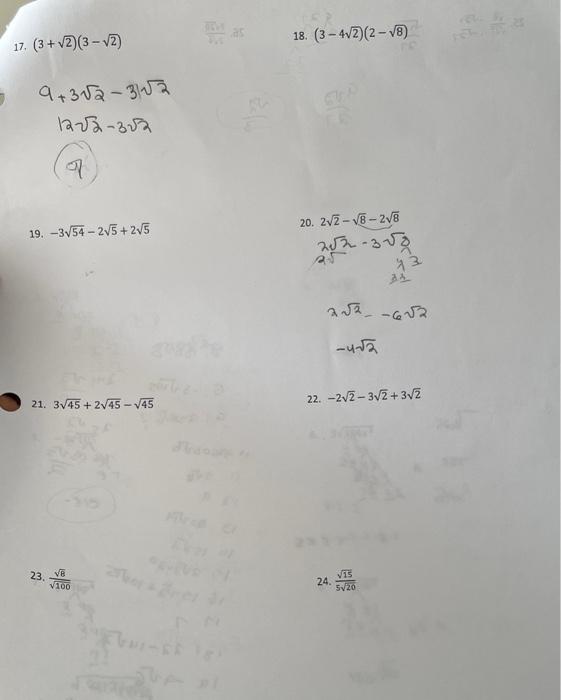 17. (3 + √2)(3 − √2)
9 + 3√2 − 3√2
12√2 − 3√2
9
18. (3 − 4√2)(2 − √8)
19. −3√54 − 2√5 + 2√5
20. 2√2 − √8 − 2√8
2√2 - 3√8
2√2 - -6√2
-4√2
21. 3√45 + 2√45 − √45
22. −2√2 − 3√2 + 3√2
23. √8/√100
24. √15/5√20